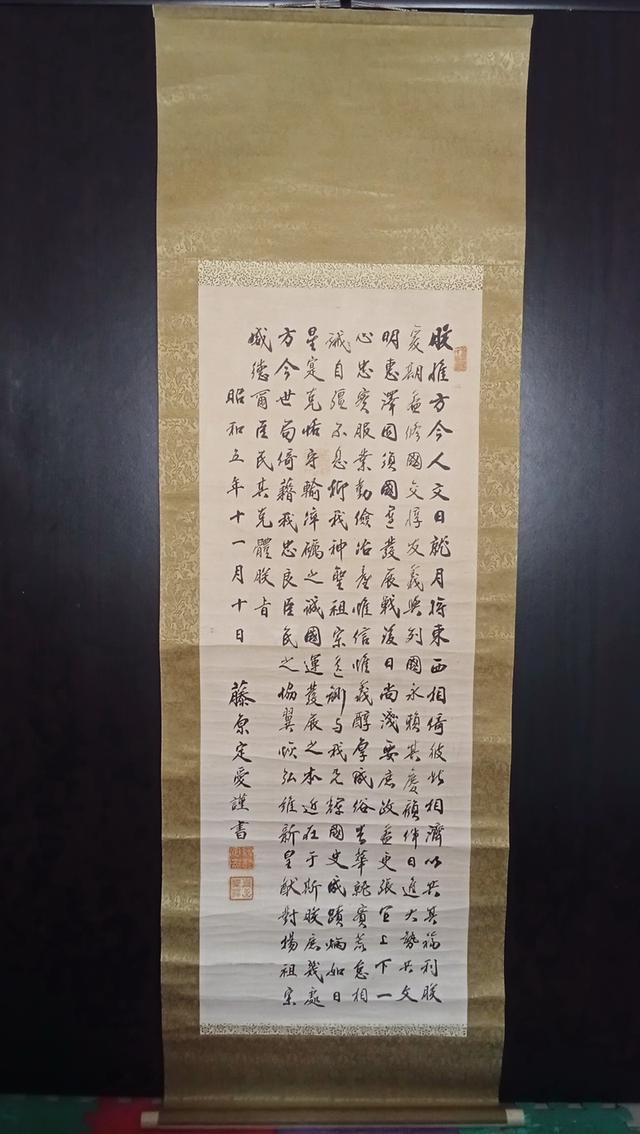 朕惟方今人文日就月将東西相倚彼此相濟以共其福利朕
爰期益修國交惇友義與列國永頼其慶顧伴日進大勢共文
明惠澤固須國運發展戰後日尚淺要庶政益更張宜上下一
心忠實服業勤儉治産惟信惟義醇厚成俗去華就實荒怠相
誡自彊不息抑我神聖祖宗遺訓与我光輝國史成蹟炳如日
星寔克恪守輸淬礪之誠國運發展之本近在于斯朕庶幾處
方今世局倚藉我忠良臣民之協翼恢弘維新皇猷對揚祖宗
威德爾臣民其克體朕旨
昭和五年十一月十日 藤原定愛謹書